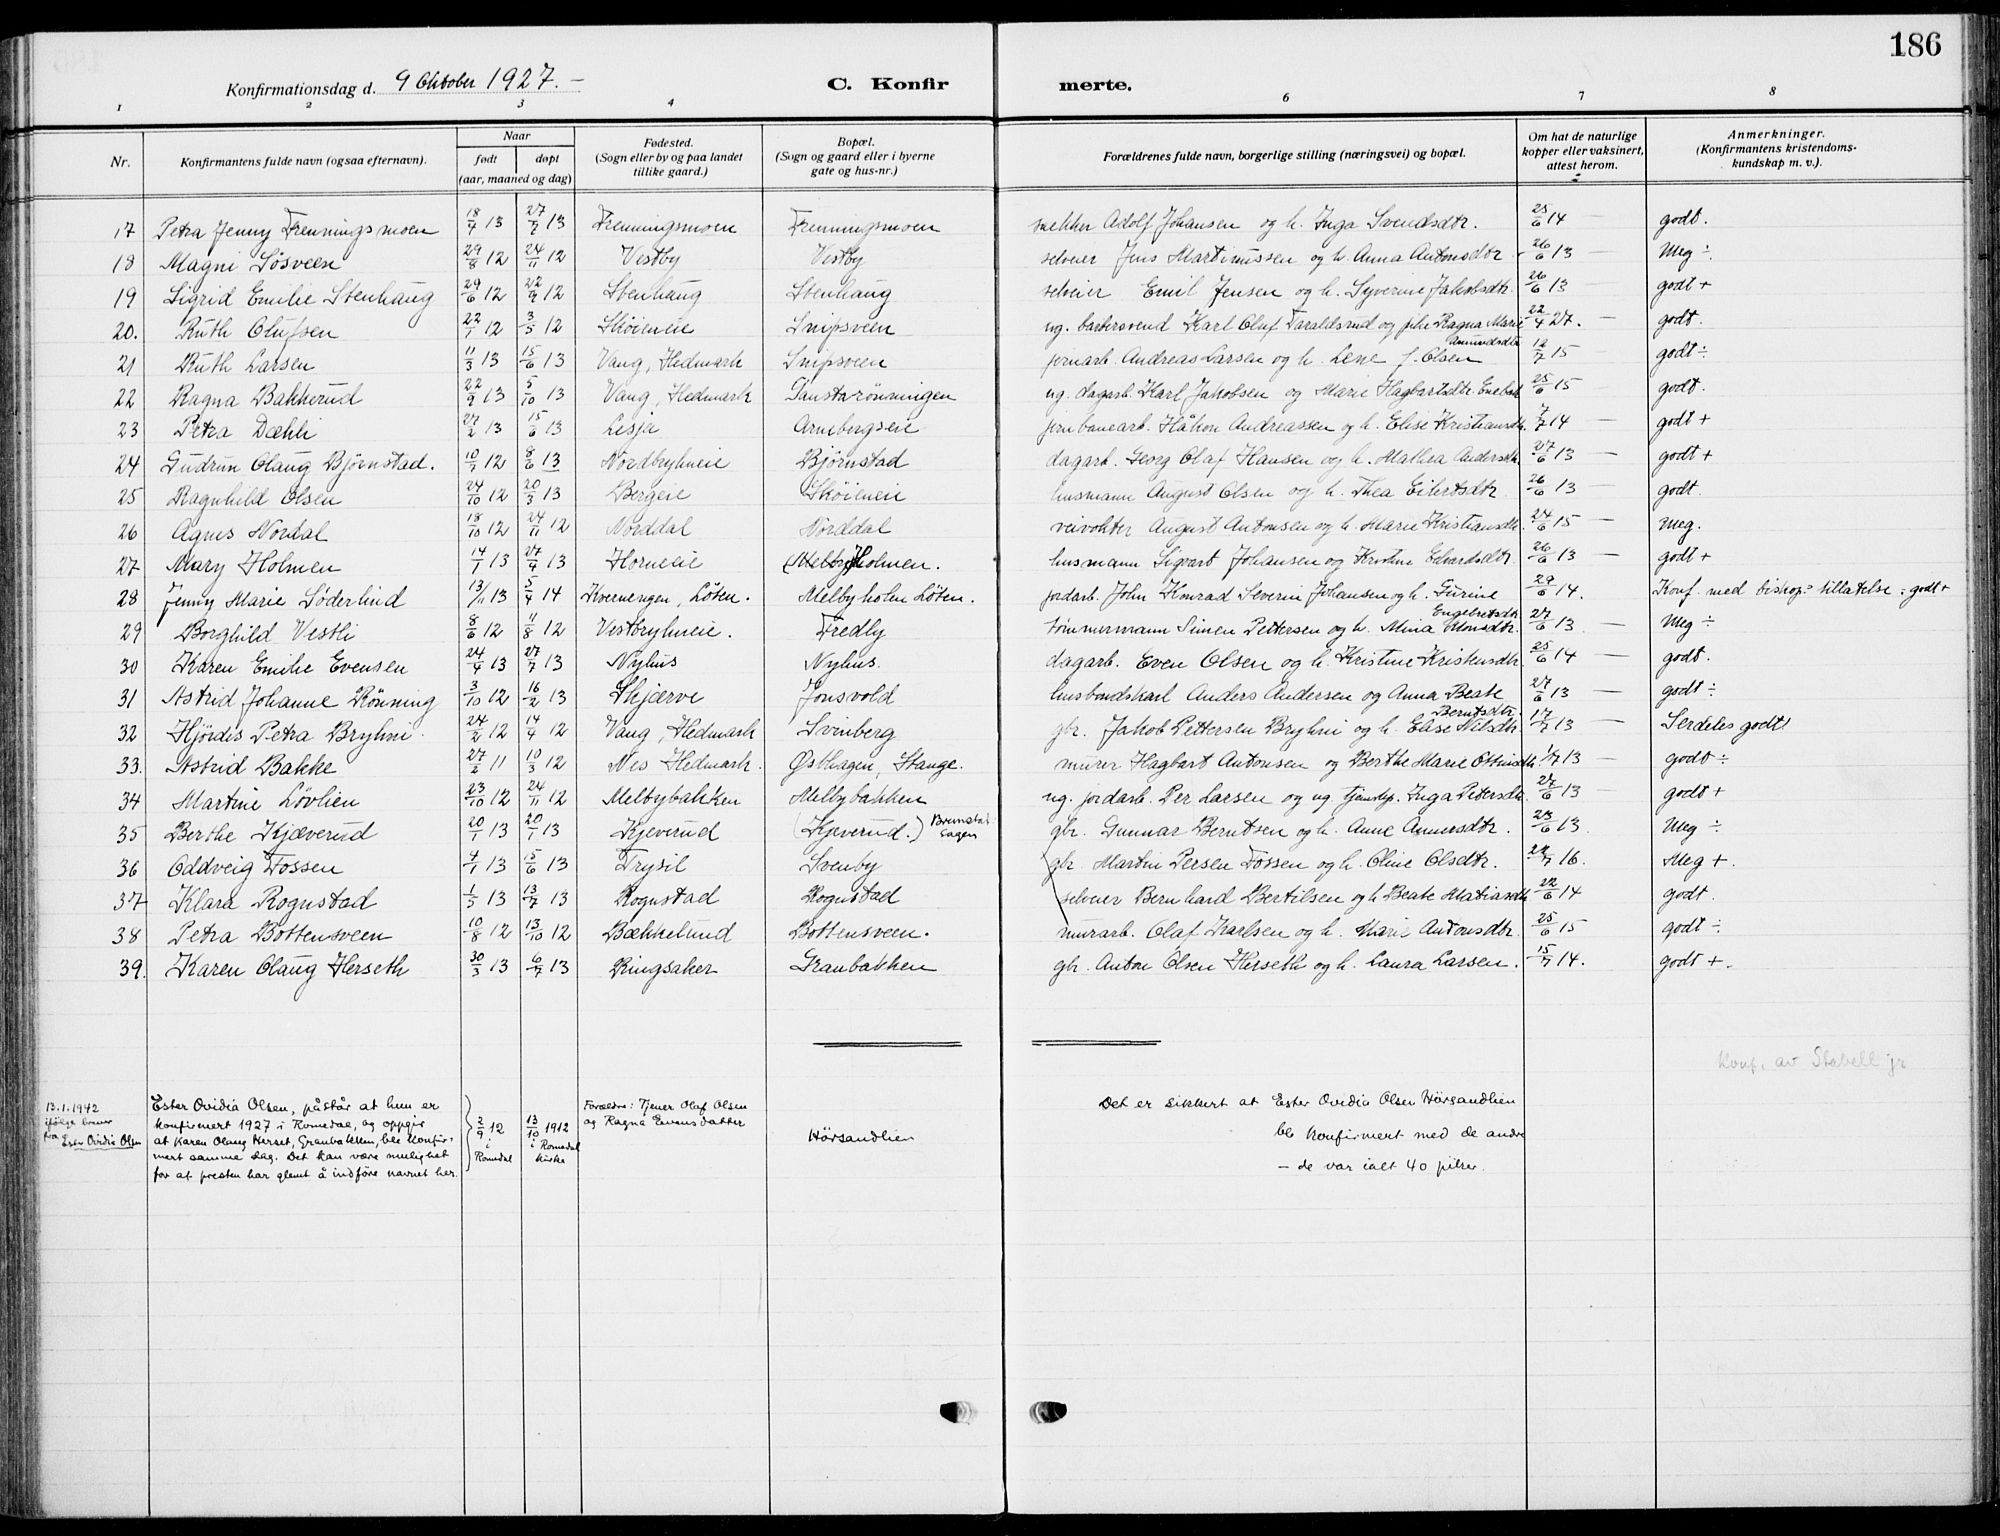 186
Konfirmationsdag d. 9 Oktober 1927. — C. Konfir merte.
1 2 3 4 5 6 7 8
Nr. Konfirmantens fulde navn (ogsaa efternavn). Naar født døpt (aar, maaned og dag) Fødested. (Sogn eller by og paa landet tillike gaard.) Bopæl. (Sogn og gaard eller i byerne gate og hus-nr.) Forældrenes fulde navn, borgerlige stilling (næringsvei) og bopæl. Om hat de naturlige kopper eller vaksinert, attest herom. Anmerkninger. (Konfirmantens kristendoms- kundskap m. v.).
17 Petra Jenny Frenningsmoen 18/4 13 27/7 13 Frenningsmoen Frenningsmoen snekker Adolf Johansen og h. Inga Svendsdtr. 25/6 14 — godt.
18 Magni Løsveen 29/8 12 24/11 12 Vestby Vestby selveier Jens Martinussen og h. Anna Antonsdtr. 26/6 13 — Meg ÷
19 Sigrid Emilie Stenhaug 29/6 12 22/9 12 Stenhaug Stenhaug selveier Emil Jensen og h. Syverine Jakobsdtr. 26/6 13 — godt +
20. Ruth Olufsen 22/1 12 3/5 12 Skøieneie Snipsveen ug. barbersvend Karl Oluf Taraldsrud og pike Ragna Marie Amundsdtr 22/4 27. — godt.
21 Ruth Larsen 11/3 13 15/6 13 Vang, Hedmark Snipsveen jernarb. Andreas Larsen og h. Lene f. Olsen 12/7 15 — godt ÷
22 Ragna Bakkerud 22/9 13 5/10 13 Vang, Hedmark Tanstarønningen ug. dagarb. Karl Jakobsen og Marie Hagbartsdtr. 25/6 15 — godt.
23 Petra Dæhli 27/2 13 15/6 13 Lesja Arnebergseie jernbanearb. Håkon Andreassen og h. Elise Kristiansdtr. 7/7 14 — godt +
24 Gudrun Olaug Bjørnstad. 10/7 12 8/6 13 Nordbryhneie Bjørnstad dagarb. Georg Olaf Hansen og h. Mathea Andersdtr. 27/6 13 — godt +
25 Ragnhild Olsen 24/10 12 20/3 13 Bergeie Skøieneie husmann August Olsen og h. Thea Eilertsdtr. 26/6 13 — godt.
26 Agnes Nordal 18/10 12 24/11 12 Norddal Norddal veivokter August Antonsen og h. Marie Kristiansdtr. 24/6 15 — Meg.
27 Mary Holmen 14/1 13 27/4 13 Horneie (Melby) Holmen. husmann Sigvart Johansen og Kristine Edvardsdtr. 26/6 13 — godt +
28 Jenny Marie Søderlind 13/11 13 5/4 14 Kvernengen, Løten. Melbyholm Løten. jordarb. John Konrad Severin Johansen og h. Gurine Engebretsdtr 29/6 14. — Konf. med biskop⁼ tillatelse : godt +
29 Borghild Vestli 8/6 12 11/8 12 Vestbryhneie. Fredly tømmermann Simen Pettersen og h. Mina Monsdtr. 27/6 13. — Meg ÷
30 Karen Emilie Evensen 24/4 13 27/7 13 Nyhus Nyhus. dagarb. Even Olsen og h. Kristine Kristensdtr. 25/6 14 — godt.
31 Astrid Johanne Rønning 3/10 12 16/2 13 Skjærve Jonsvold husbondskarl Anders Andersen og Anna Beate Berntsdtr. 27/6 13 — godt ÷
32 Hjørdis Petra Bryhni 24/2 12 14/4 12 Vang, Hedmark Svinberg gbr. Jakob Pettersen Bryhni og h. Elise Nilsdtr. 17/7 13 — Serdeles godt!
33. Astrid Bakke 27/2 11 10/3 12 Nes Hedmark. Østhagen, Stange. murer Hagbart Antonsen og Berthe Marie 1/7 13 — godt ÷
34 Martine Løvlien 23/10 12 24/11 12 Melbybakken Melbybakken ug. jordarb. Per Larsen og ug. tjenstep. Inga Petersdtr. 27/6 13 — godt +
35 Berthe Kjæverud 20/1 13 20/1 13 Kjeverud (Kjeverud.) Brenstad sagen gbr. Gunnar Berntsen og h. Anne Annersdtr. 23/6 13. — Meg ÷
36 Oddveig Fossen 4/1 13 15/6 13 Trysil Svenby gbr. Martin Persen Fossen og h. Oline Olsdtr. 22/7 16. — Meg +
37 Klara Rognstad 1/5 13 13/7 13 Rognstad Rognstad selveier Bernhard Bertilsen og h Beate Matiasdtr 22/6 14 — godt.
38 Petra Bottensveen 10/8 12 13/10 12 Bækkelund Bottensveen. murarb. Olaf Karlsen og h. Marie Antonsdtr. 25/6 15 — godt ÷
39. Karen Olaug Herseth 30/3 13 6/7 13 Ringsaker Granbakken gbr. Anton Olsen Herseth og h. Laura Larsen. 15/7 14. — godt +.
Konf. av Stabell jr
13.1.1942 ifølge brev fra Ester Ovidia Olsen
Ester Ovidia Olsen, påstår at hun er
konfirmert 1927 i Romedal, og oppgir
at Karen Olaug Herset, Granbakken, ble konfir-
mert samme dag. Det kan være mulighet
for at presten har glemt å indføre navnet her.
2/9 12 i Romedal
13/10 1912 i Romedal kirke
Forældre: Tjener Olaf Olsen
og Ragna Evensdatter
Hørsandlien
Det er sikkert at Ester Ovidia Olsen Hørsandlien
ble konfirmert med de andre
— de var ialt 40 piker.